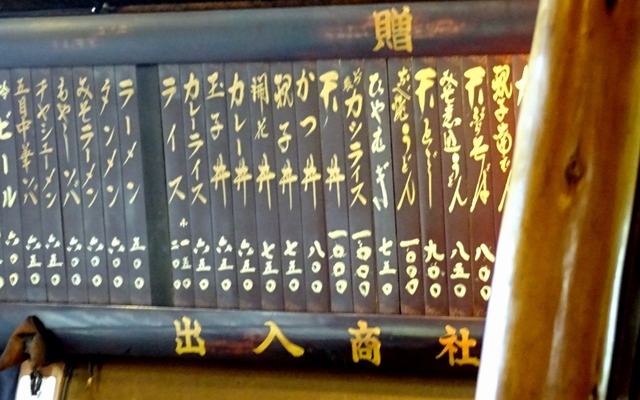 贈
親子南ばん
天ぷらそば 八〇〇
みそ煮込うどん 八五〇
天とじ 九〇〇
志乃うどん 一〇〇〇
ひやむぎ 七五〇
カツライス 一〇〇〇
天丼 一〇〇〇
かつ丼 八〇〇
親子丼 七五〇
開花丼 七五〇
カレー丼 六五〇
玉子丼 六五〇
カレーライス 六五〇
ライス 二〇〇 小一五〇
ラーメン 五〇〇
タンメン 六〇〇
みそラーメン 六〇〇
もやしソバ 六〇〇
チャシューメン 六五〇
五目中華ソバ 六五〇
冷ビール
出入商社